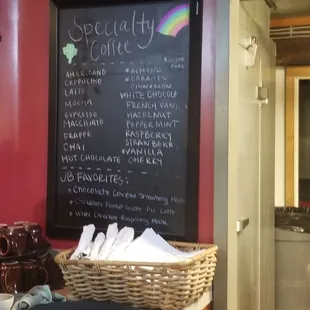 Specialty
Coffee
AMERICANO
CAPPUCINO
LATTE
MOCHA
ESPRESSO
MACCHIATO
FRAPPE
CHAI
HOT CHOCOLATE
ALMOND
CARAMEL
CINNAMON
WHITE CHOCOLA
FRENCH VANI
HAZELNUT
PEPPERMINT
RASPBERRY
STRAWBERRY
VANILLA
CHERRY
JB FAVORITES:
Chocolate Covered Strawberry
Pie Latte
White Chocolate Raspberry Mocha